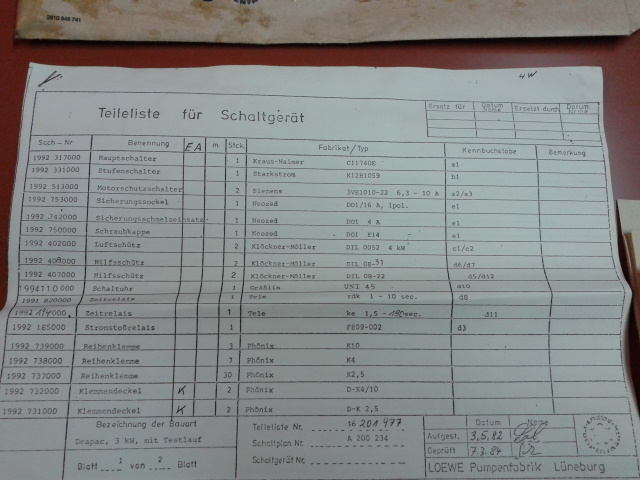 0810 846 741
4W
Teileliste für Schaltgerät
Ersatz für Datum Name Ersetzt durch Datum Name
Sach-Nr Benennung E A m Stck. Fabrikat/Typ Kennbuchstabe Bemerkung
1992 317000 Hauptschalter 1 Kraus-Naimer C11740E a1
1992 331000 Stufenschalter 1 Starkstrom K12H1059 b1
1992 513000 Motorschutzschalter 2 Siemens 3VE1010-22 6,3 - 10 A a2/a3
1992 753000 Sicherungssockel 1 Neozed DO1/16 A, 1pol. e1
1992 742000 Sicherungsschmelzeinsatz 1 Neozed DO1 4 A e1
1992 750000 Schraubkappe 1 Neozed DO1 E14 e1
1992 402000 Luftschütz 2 Klöckner-Möller DIL 0052 4 kW c1/c2
1992 408000 Hilfsschütz 2 Klöckner-Möller DIL 08-31 d6/d7
1992 407000 Hilfsschütz 2 Klöckner-Möller DIL 08-22 d5/d12
1994110 000 Schaltuhr 1 Gräßlin UNI 45 d10
1991 820000 Zeitrelais 1 Tele rdk 1 - 10 sec. d8
1992 000. Zeitrelais 1 Tele ke 1,5 - sec. d11
1992 185000 Stromstoßrelais 1 F809-002 d3
1992 739000 Reihenklemme 3 Phönix K10
1992 738000 Reihenklemme 7 Phönix K4
1992 737000 Reihenklemme 30 Phönix K2,5
1992 732000 Klemmendeckel K 2 Phönix D-K4/10
1992 731000 Klemmendeckel K 2 Phönix D-K 2,5
Bezeichnung der Bauart Teileliste Nr. 16 201 977 Datum Name
Drapac, 3 kW, mit Testlauf Schaltplan Nr. A 200 234 Aufgest. 3,5,82
Geprüft 7.3.84
Blatt 1 von 2 Blatt Schaltgerät Nr. LOEWE Pumpenfabrik Lüneburg